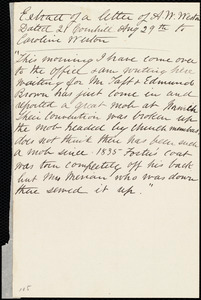 Extract of a letter of A. W. Weston
Dated 21 Cornhill Aug 29th to
Caroline Weston
"This morning I have come over
to the office & am writing here
waiting for Mr Taft & Edmund
Brown has just come in and
reported a great mob at
Their Convention was broken up
the mob headed by church members
does not think there has been such
a mob since 1835 Foster's coat
was torn completely off his back
but Mrs Merriam who was down
there sewed it up."